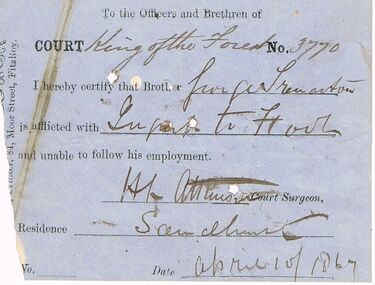 To the Officers and Brethren of
COURT King of the Forest No. 3770
I hereby certify that Brother George
is afflicted with Injury to Foot
and unable to follow his employment.
Court Surgeon,
Residence Sandhurst
No. Date April 10/1867
Moor Street, Fitzroy.